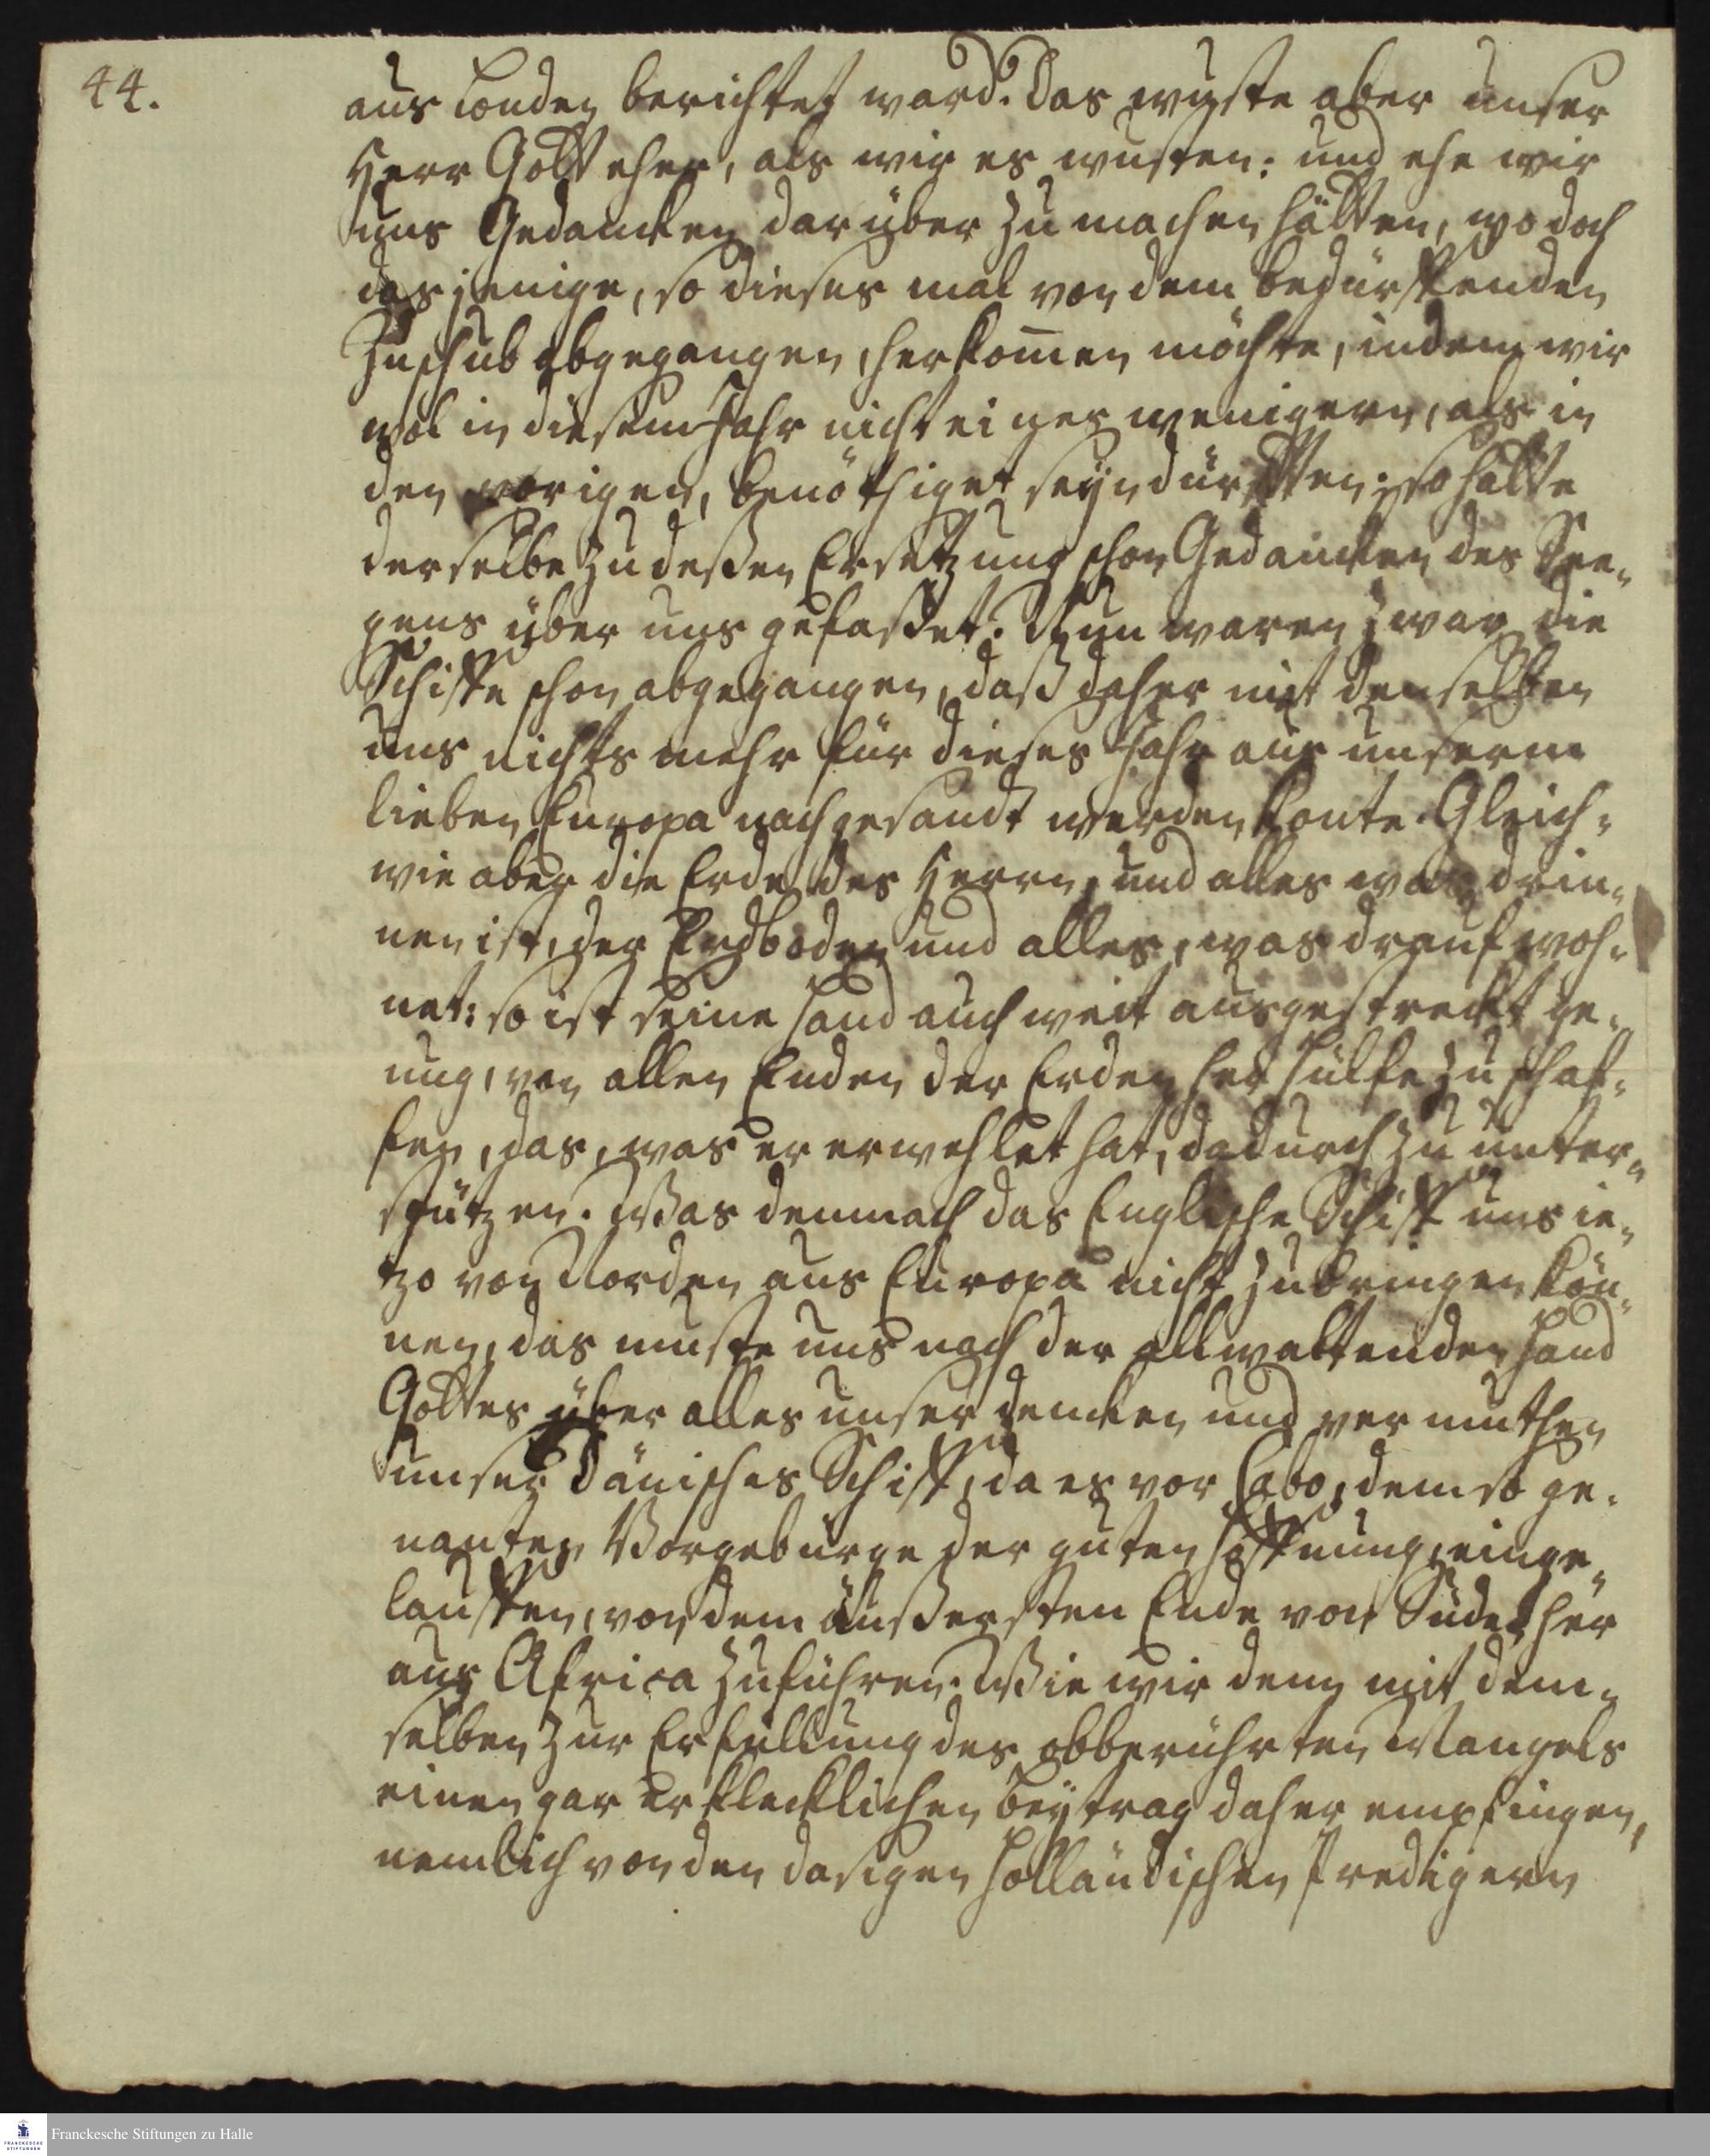 44.
aus London berichtet ward. Das wuste aber unser
Herr Gott eher, als wir es wusten: und ehe wir
uns Gedancken darüber zu machen hätten, wo doch
dasjenige, so dieses mal von dem bedürffenden
Zuschub abgegangen, herkom̄en möchte, indem wir
wol in diesem Jahr nicht eines wenigern, als in
den vorigen, benöthiget seyn dürfften; so hatte
derselbe zu deßen Ersetzung schon Gedancken des See-
gens über uns gefaßet. Nun waren zwar die
Schiffe schon abgegangen, daß daher mit denselben
uns nichts mehr für dieses Jahr aus unserm
lieben Europa nachgesandt werden konte. Gleich-
wie aber die Erde des Herrn, und alles was drin-
nen ist, der Erdboden und alles, was drauf woh-
net: so ist seine Hand auch weit ausgestreckt ge-
nug, von allen Enden der Erden her Hülfe zu schaf-
fen, das, was er erwehlet hat, dadurch zu unter-
stützen. Was demnach das Englische Schiff uns ie-
tzo von Norden aus Europa nicht zubringen kön-
nen, das muste uns nach der allwaltenden Hand
Gottes über alles unser dencken und vermuthen
unser Dänisches Schiff, da es vor Cabo, dem so ge-
nanten Vorgebürge der guten Hoffnung, einge-
lauffen, von dem äußersten Ende von Süden her
aus Africa zuführen. Wie wir denn mit dem-
selben zur Erfüllung des obberührten Mangels
einen gar erklecklichen Beytrag daher empfingen,
nemlich von den dasigen Holländischen Predigern
Franckesche Stiftungen zu Halle
FRANCKESCHE
STIFTUNGEN